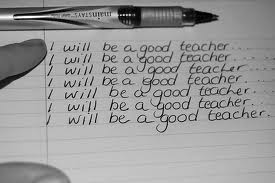 I will be a good teacher....
I will be a good teacher....
I will be a good teacher....
I will be a good teacher....
I will be a good teacher....
I will be a good teacher....
I will be a good teacher.